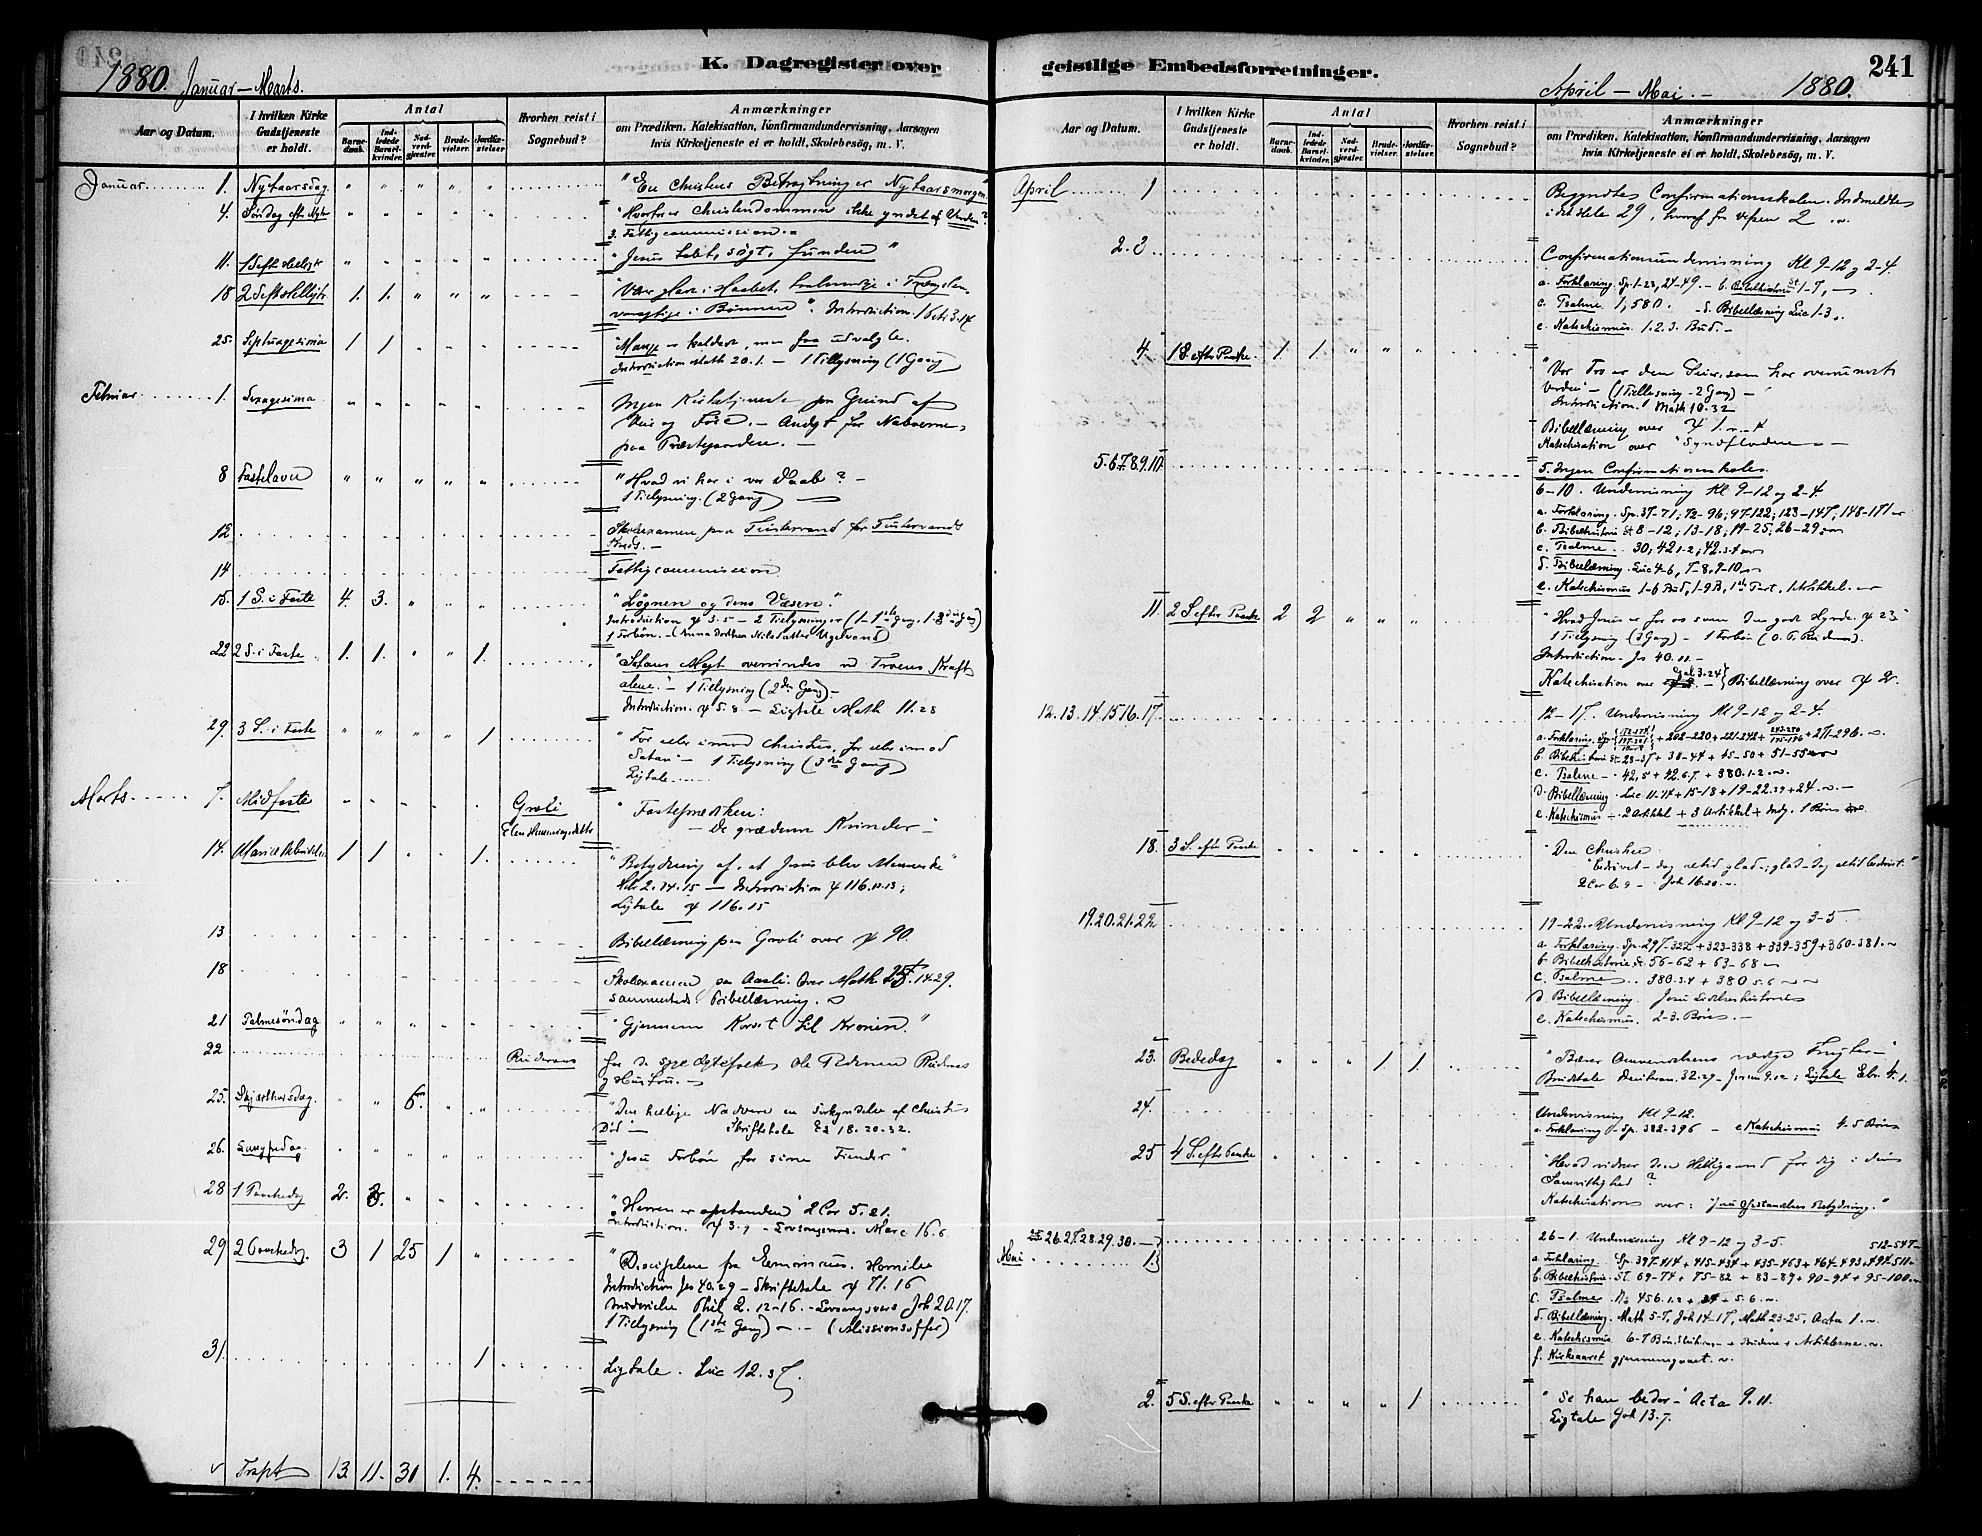 1880. Januar – Marts.
K. Dagregister over
Aar og Datum.
I hvilken Kirke Gudstjeneste er holdt.
Antal
Barnedaab.
Indledede Barselkvinder.
Nadverdgjester.
Brudevielser.
Jordfæstelser.
Hvorhen reist i Sognebud?
Anmærkninger
om Prædiken, Katekisation, Konfirmandundervisning, Aarsagen
hvis Kirketjeneste ei er holdt, Skolebesøg, m. V.
Januar 1. Nytaarsdag " " " " " "En Christens Betragtninger Nytaarsmorgen"
4. Søndag eft. Nytår " " " " " "Hvorfor er Christendommen ikke yndet af Verden?"
3. Fattigcommission.
11. 1 S eft Helligtr " " " " " "Jesus tabt, søgt, funden"
18 2 S eft Helligtr 1. 1. " " " "Vær glade i Haabet, taalmodige i Trængslen,
varagtige i Bønnen". Introduction.
25. Septuagesima 1 1 " " " "Mange er kaldede, men faa udvalgte.
Introduction Math 20.1. – 1 Tillysning (1 Gang)
Februar 1. Sexagesima " " " " " Ingen Kirketjeneste paa Grund af
Veir og Føre. – Andagt for Naboerne
paa Præstegaarden. –
8 Fastelavn " " " " " "Hvad vi har i vor Daab?" –
1 Tillysning. (2 Gang)
12 Skoleexamen paa
14 Fattigcommission
15. 1 S. i Faste 4. 3. " " " "Løgnen og dens Væsen."
Introduction ψ 5.5 – 2 Tillysninger
1 Forbøn. –
22 2 S. i Faste 1. 1. " " 1. "Satans Magt overvindes ved Troens Kraft
alene." – 1 Tillysning (2den Gang) –
Introduction. ψ 5.8 – Ligtale Math 11.28
29. 3 S. i Faste " " " " 1 "For eller imod Christus, for eller imod
Satan" – 1 Tillysning (3die Gang)
Ligtale
Marts 7. Midfaste " " " " " Groti "Fasteprædiken:
– De grædende Kvinder –"
14. Mariæ Bebudelse 1 1 " " 1. "Betydning af, at Jesus blev Menneske"
Heb 2.14.15 – Introduction ψ 116.12.13;
Ligtale ψ 116.15
13 Bibellæsning paa Groti over ψ 90.
18 Skoleexamen paa Aasli. Over Math 25. 14-29.
sammesteds Bibellæsning.
21 Palmesøndag " " " " " "Gjennem Korset til Kronen."
22 for de Ægtefolk Ole Pedersen
og Hustru. –
25. Skjærthorsdag. " " 6 " " "Den hellige Nadvere en Forkyndelse af Christi
Død" – Skriftetale Es 18.30-32.
26. Langfredag. " " " " " "Jesu Forbøn for sine Fiender"
28 1 Paaskedag 2. 2. " " " "Herren er opstanden" 2 Cor 5.21.
Introduction. ψ 3. – Lovsangsvers. Marc 16.6.
29 2 Paaskedag. 3 1 25 1 " "Disciplene fra Emmaus. Homilie
Introduction Jes 40.29 – Skriftetale ψ 71.16
Brudevielse Phil 2. 12-16. – Lovsangsvers Joh 20.17.
1 Tillysning (1ste Gang) – (Missionsoffer)
31. 1 Ligtale. Luc 12.
Trspt 13. 11. 31 1. 4.
geistlige Embedsforretninger.
April – Mai. – 1880.
241
Aar og Datum.
I hvilken Kirke Gudstjeneste er holdt.
Antal
Barnedaab.
Indledede Barselkvinder.
Nadverdgjester.
Brudevielser.
Jordfæstelser.
Hvorhen reist i Sognebud?
Anmærkninger
om Prædiken, Katekisation, Konfirmandundervisning, Aarsagen
hvis Kirketjeneste ei er holdt, Skolebesøg, m. V.
April 1 Begyndtes Confirmationsskolen. Indmeldtes
i det Hele 29, hvoraf fra 2
2.3 Confirmationsundervisning Kl 9-12 og 2-4.
a. Forklaring. Sp. 1-23, 24-49. – b. Bibelhistorie St 1-7, –
c. Psalme 1, 580. – d. Bibellæsning Luc 1-3
e. Katechismus 1.2.3. Bud. –
4. 1 S. efter Paaske. 1 1 " " " "Vor Tro er den Seier, som har overvundet
Verden" – (1 Tillysning – 2 Gang) –
Introduction. Math 10.32
Bibellæsning over ψ 1.
Katechisation over "Syndfloden"
5.6.7.8.9.10. 5. Ingen Confirmationsskole.
6-10. Undervisning Kl 9-12 og 2-4.
a. Forklaring. Sp. 37-71; 72-96; 97-122; 123-147; 148-171
b. Bibelhistorie St 8-12; 13-18; 19-25; 26-29
c. Psalme 30; 42 1-2; 42.3-4
d. Bibellæsning. Luc 4-6, 7-8, 9-10
e. Katechismus 1-6 Bud, 1-9 B, 1ste Part, 1 Artikkel.
11. 2 S. efter Paaske 2 2 " " " "Hvad Jesus er for os som den gode Hyrde. ψ 23"
1 Tillysning (3 Gang) – 1 Forbøn
Introduction – Js 40.11 –
Katechisation over Gal 3.24 – Bibellæsning over ψ 2.
12. 13. 14. 15 16. 17. 12-17. Undervisning Kl 9-12 og 2-4.
a. Forklaring. Sp + 202-220 + 221-242 + + 271-296.
b. Bibelhistorie St. 28-37 + 38-44 + 45-50 + 51-55
c. Psalme – 42,5 + 42.6.7 + 380.1-2.
d. Bibellæsning. Luc 11-14 + 15-18 + 19-22.39 + 24. –
e. Katechismus – 2 Artikkel + 3 Artikkel + Indg. 1 Bøn
18. 3 S. efter Paaske " " " " " "Den Christne
"bedrøvet – dog altid glad; glad – dog altid bedrøvet."
2 Cor 6.9 – Joh 16.20.
19.20.21.22. 19-22. Undervisning Kl 9-12 og 3-5.
a Forklaring. Sp. 297-322 + 323-338 + 339-359 + 360-381.
b Bibelhistorie St 56-62 + 63-68
c. Psalme 380.3.4 + 380 5.6
d. Bibellæsning. Jesu Lidelseshistorie
e. Katechismus. 2-3. Bøn. –
23. Bededag " " " 1 1 "Bærer Omvendelsens værdige Frugter –"
Brudetale ; Ligtale Ebr. 4.1.
24. Undervisning Kl. 9-12.
a. Forklaring – Sp. 382-396 – e Katechismus 4-5 Bøn
25 4 S. efter Paaske " " " " " "Hvad vidner den Helligaand for dig i din
Samvittighed?
Katechisation over: "Jesu Opstandelses Betydning."
26.27.28.29.30. –
Mai 1. 26-1. Undervisning Kl 9-12 og 3-5. 512-547
a. Forklaring Sp 397-414 + 415-434 + 435-463 + 464-493 + 494-511
b. Bibelhistorie. St. 69-74 + 75-82 + 83-89 + 90-94 + 95-100
c. Psalme. No 456.1.2 + 34 + 5.6.
d. Bibellæsning. Math 5-7, Joh 14-17, Math 23-25. Acta 1.
e. Katechismus 6-7 Bøn. + + Artiklerne.
f. Kirkeaaret gjennemgaaet.
2. 5 S. efter Paaske " " " " 1 "Se han beder" Acta 9.11.
Ligtale Joh 13.7.